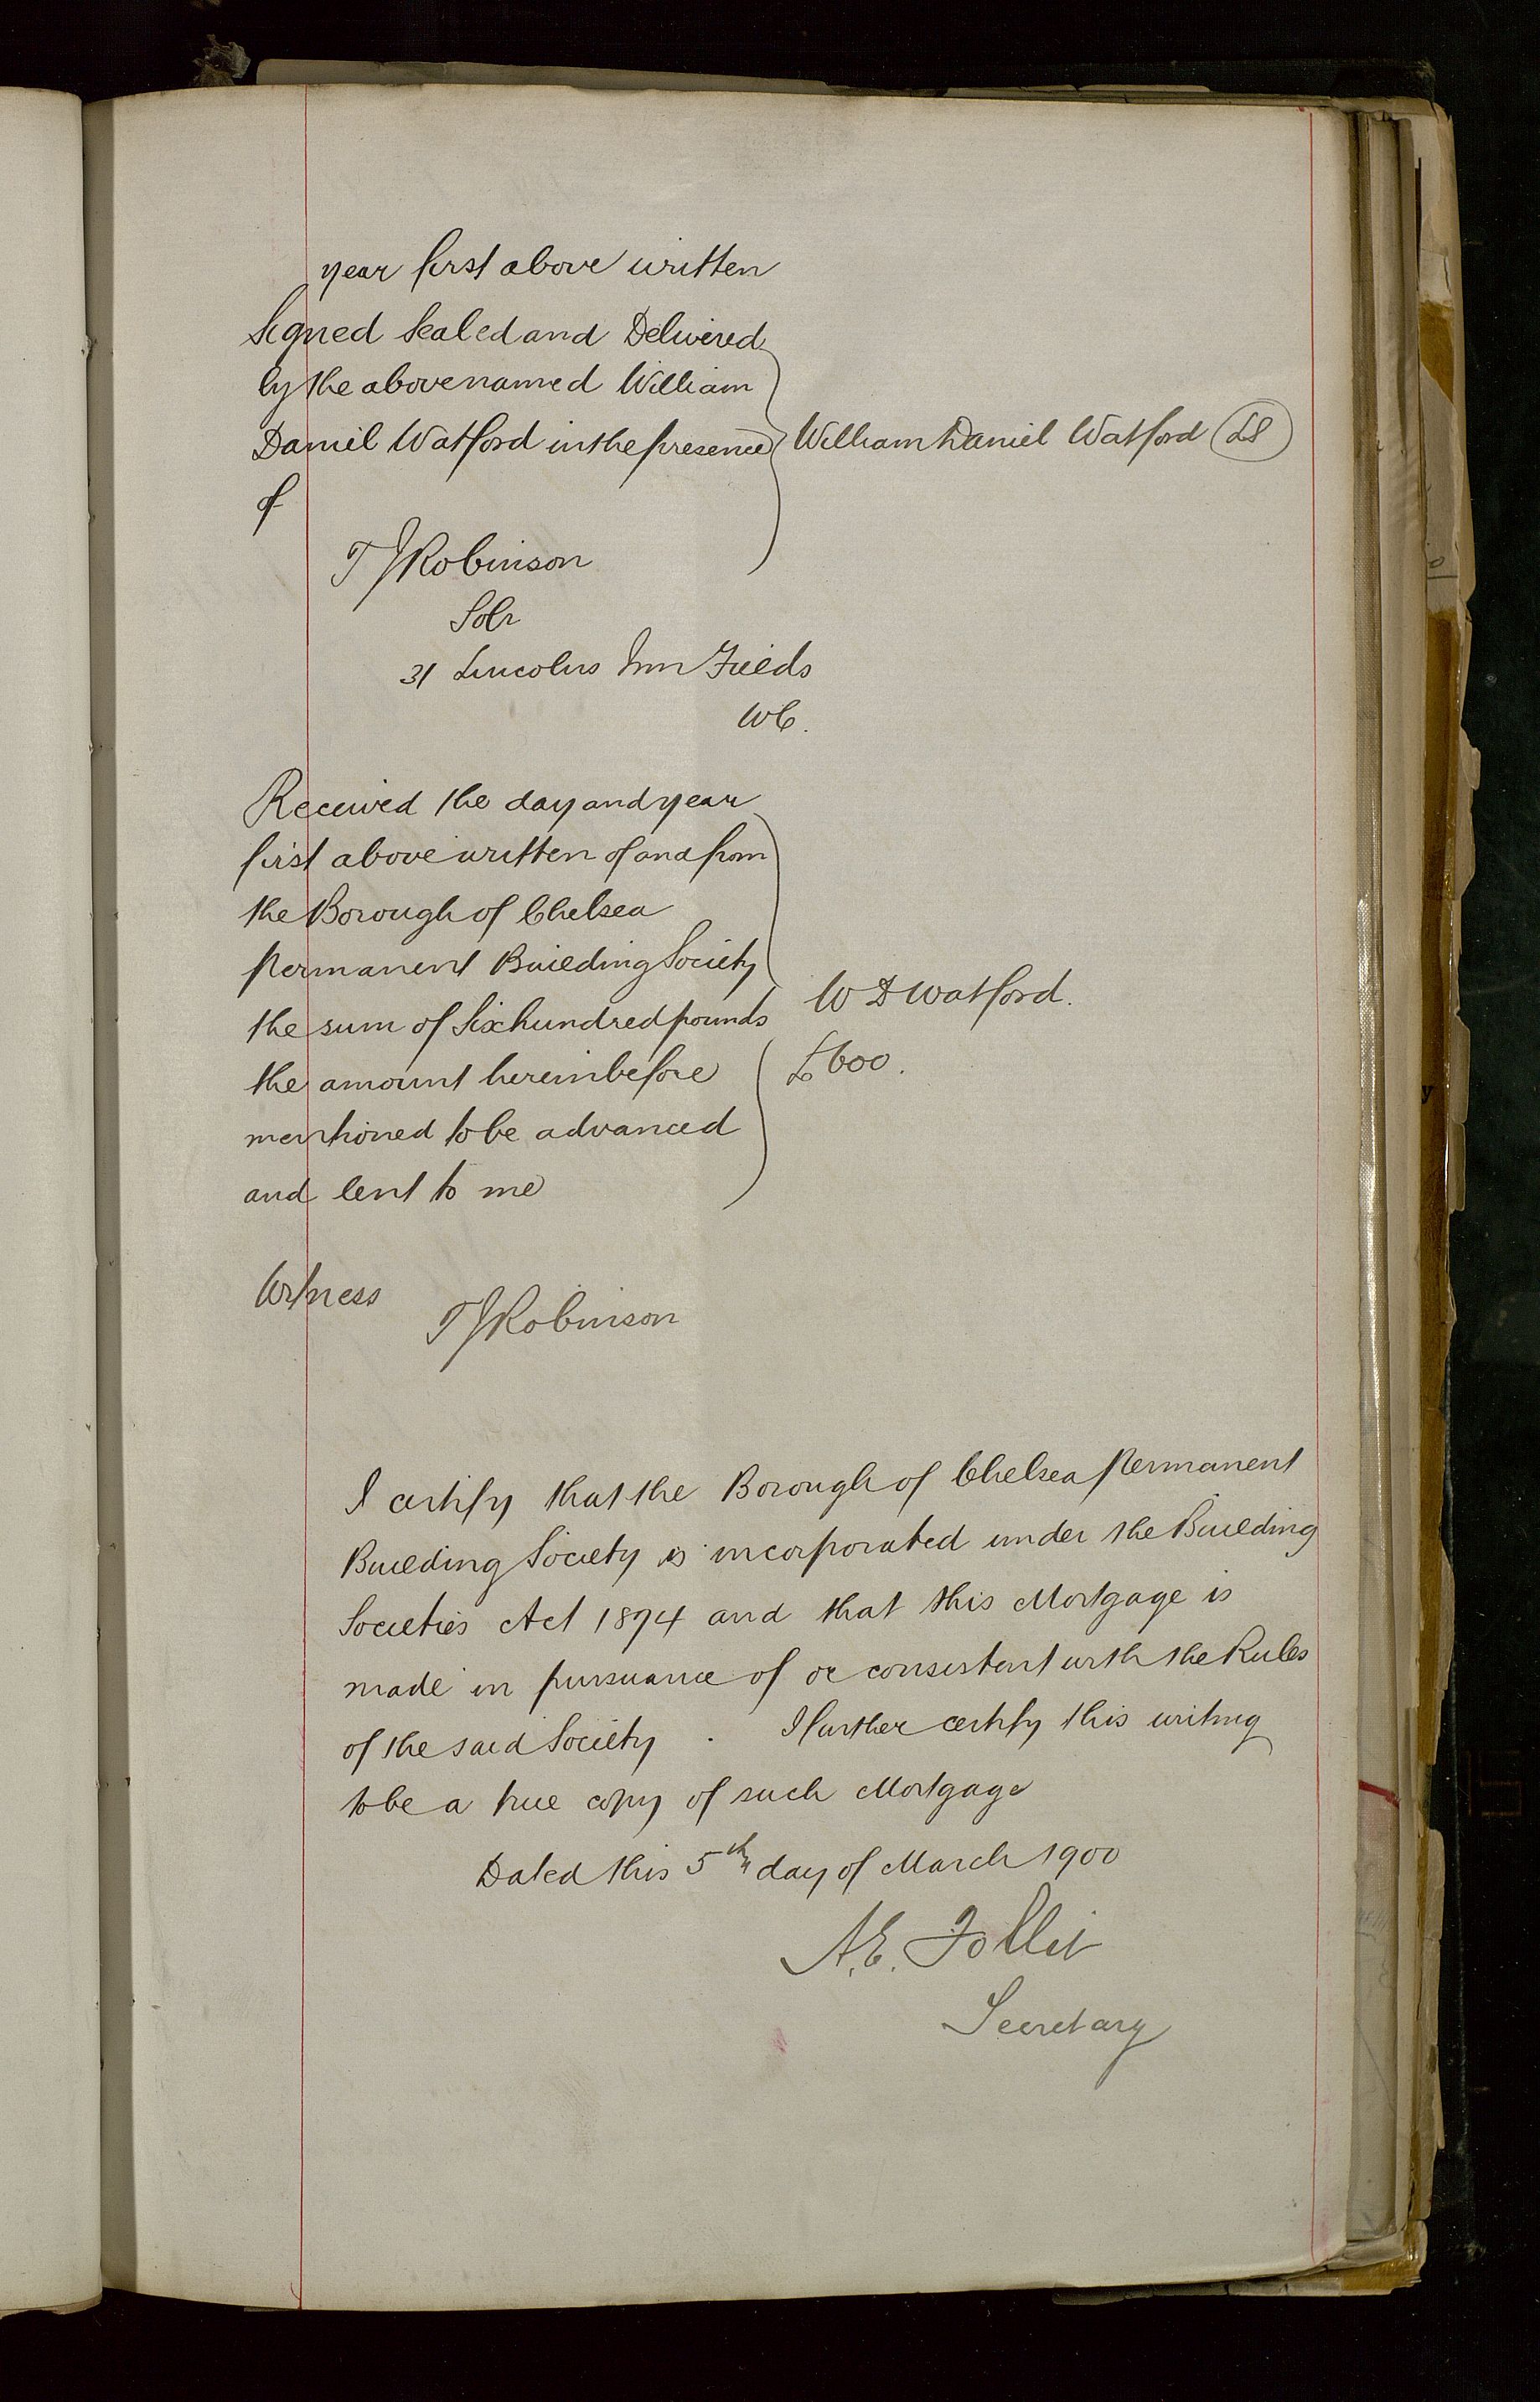 year first above written
Signed Sealed and Delivered
by the abovenamed William
Daniel Watford in the presence
of
William Daniel Watford LS
T J Robinson
Solr
31 Lincolns Inn Fields
WC.
Received the day and year
first above written of and from
the Borough of Chelsea
Permanent Building Society
the sum of Six hundred pounds
the amount hereinbefore
mentioned to be advanced
and lent to me
W D Watford.
£600.
Witness
T J Robinson
I certify that the Borough of Chelsea Permanent
Building Society is incorporated under the Building
Societies Act 1874 and that this Mortgage is
made in pursuance of or consistent with the Rules
of the said Society . I further certify this writing
to be a true copy of such Mortgage
Dated this 5th day of March 1900
A.E. Follit
Secretary